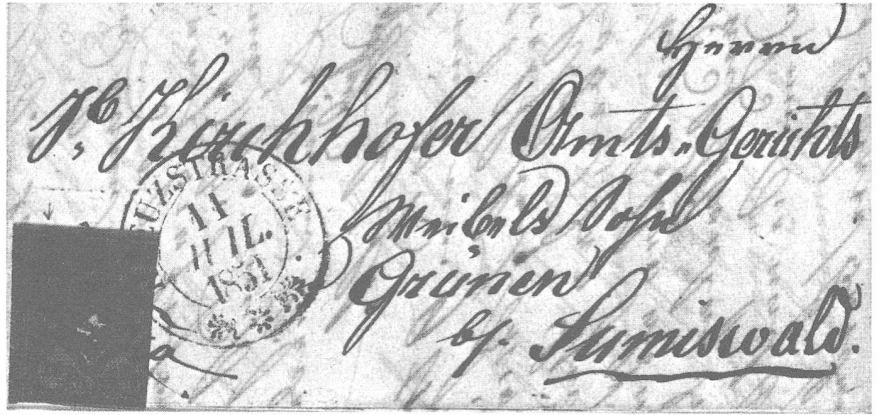 Herrn
Jb Kirchhofer Amts-Gerichts
Weibels Sohn
Grünen
bj. Sumiswald.
UZSTRASSE
11
JUIL.
1851